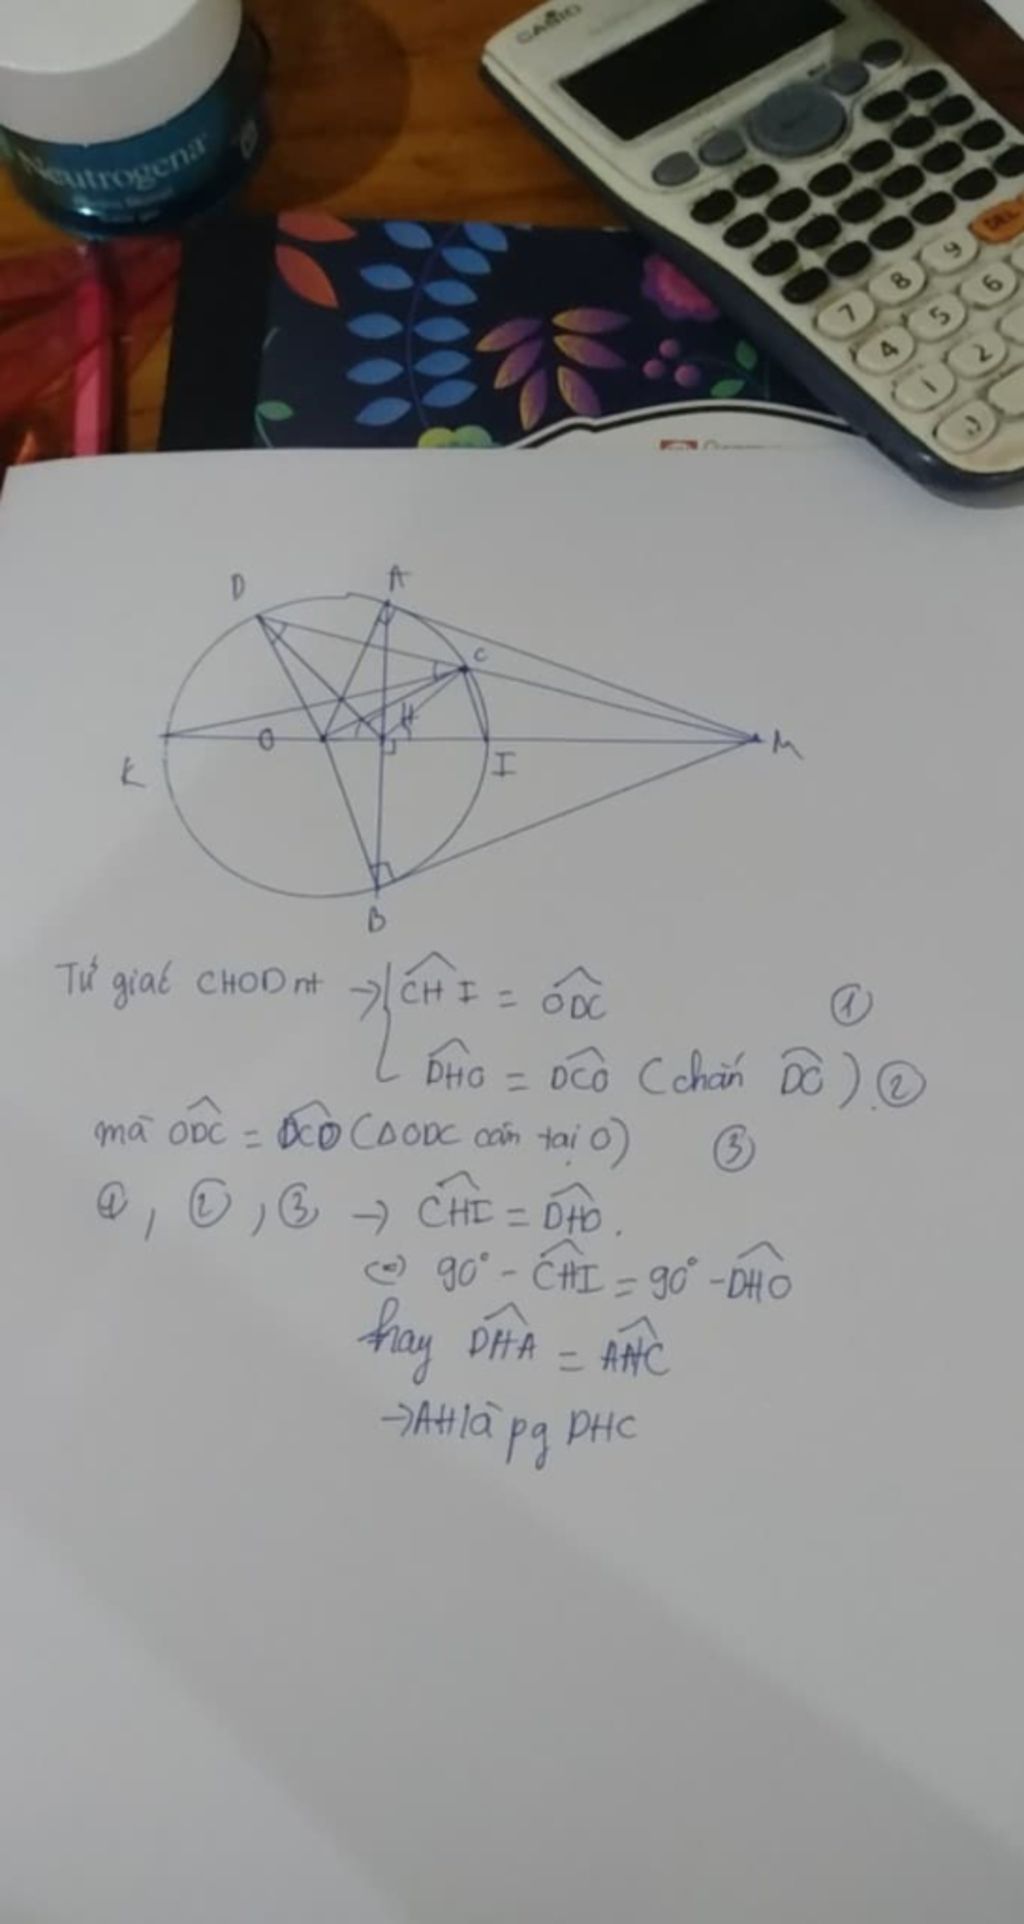 CASIO
Neutrogena
DEL
7 8 9
4 5 6
1 2
D A
C
K O H I M
B
Tứ giác CHOD nt → { CHI = ODC ①
DHO = DCO (chắn DO) ②
mà ODC = DCO (ΔODC cân tại O) ③
①, ②, ③ → CHI = DHO.
(=) 90° - CHI = 90° - DHO
hay DHA = AHC
→ AH là pg DHC